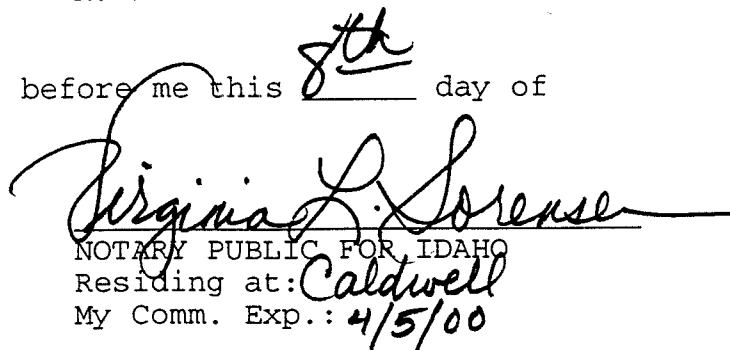 before me this 8th day of
Virginia L. Sorensen
NOTARY PUBLIC FOR IDAHO
Residing at: Caldwell
My Comm. Exp.: 4/5/00